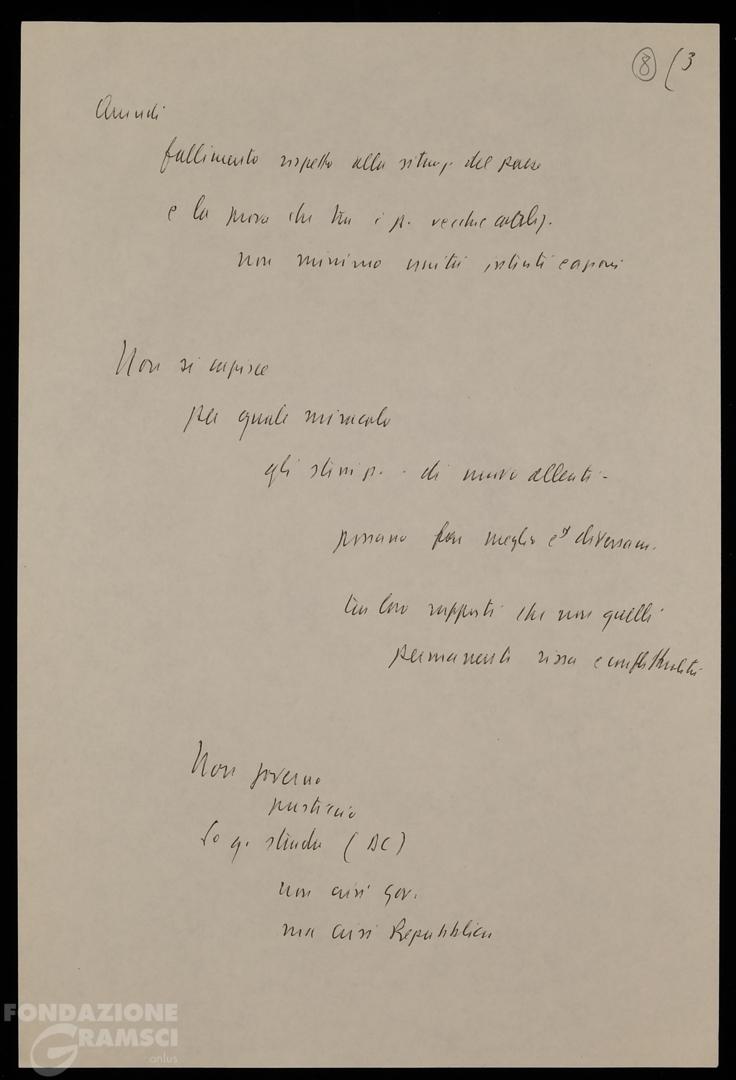 8 (3
Quindi
fallimento rispetto alla situaz. del paese
e la prova che tra i p. vecchie
non minimo unità intenti e azioni
Non si capisce
per quale miracolo
gli stessi p. - di nuovo alleati -
possano fare meglio e diversam.
tra loro rapporti che non quelli
permanenti rissa e conflittualità
Non governo
pasticcio
Lo q. strada (DC)
non crisi gov.
ma crisi Repubblica
FONDAZIONE
GRAMSCI
onlus